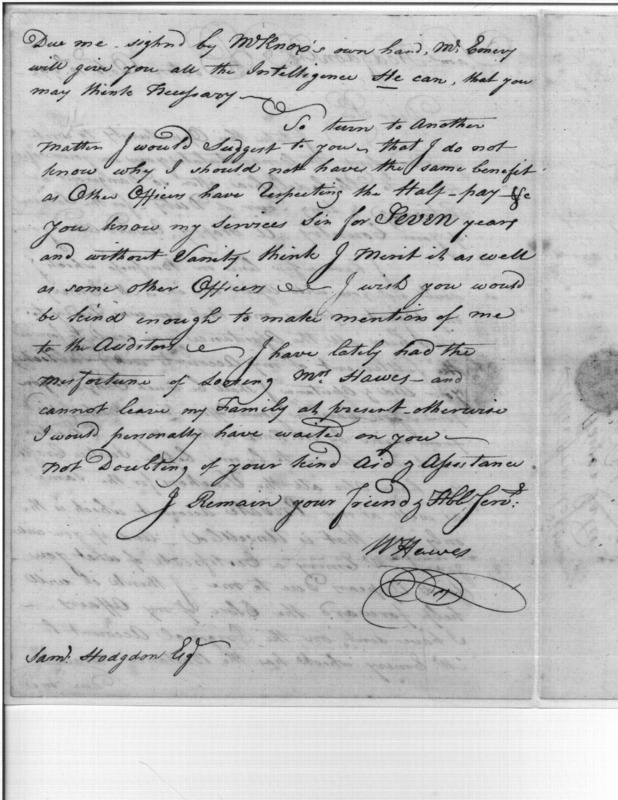 Due me sighnd by Mr Knox's own hand, Mr Emery
will give you all the Intellegence He can, that you
may think Necessary
To turn to Another
matter I would Suggest to you, that I do not
know why I should not have the same benefit
as Other Officers have respecting the Half-pay &c
you know my services Sir for Seven years
and without Vanity think I Merit it as well
as some other Officers I wish you would
be kind enough to make mention of me
to the Auditors I have lately had the
misfortune of Loosing Mrs Hawes and
cannot leave my Family at present otherwise
I would personally have waited on you
not Doubting of your kind Aid & Assistance
I Remain your friend & Hble Servt:
Wm Hawes
Saml. Hodgdon Esqr